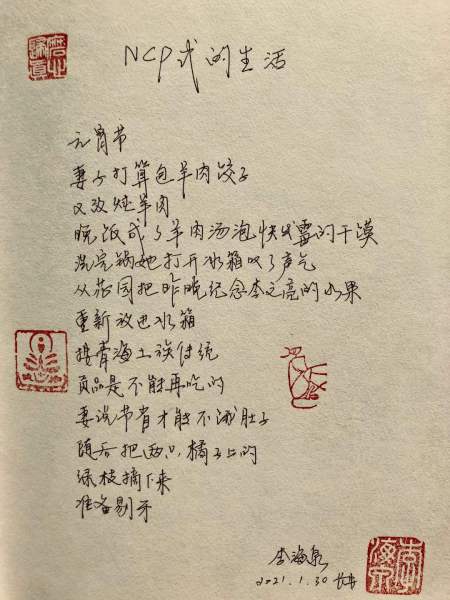 NCP式的生活
元宵节
妻子打算包羊肉饺子
又改炖羊肉
晚饭成了羊肉汤泡快发霉的干馍
洗完锅她打开冰箱叹了声气
从花园把昨晚纪念李文亮的水果
重新放进冰箱
按青海土族传统
贡品是不能再吃的
妻说节省才能不饿肚子
随后把两只橘子上的
绿枝摘下来
准备剔牙
李海泉
2021.1.30